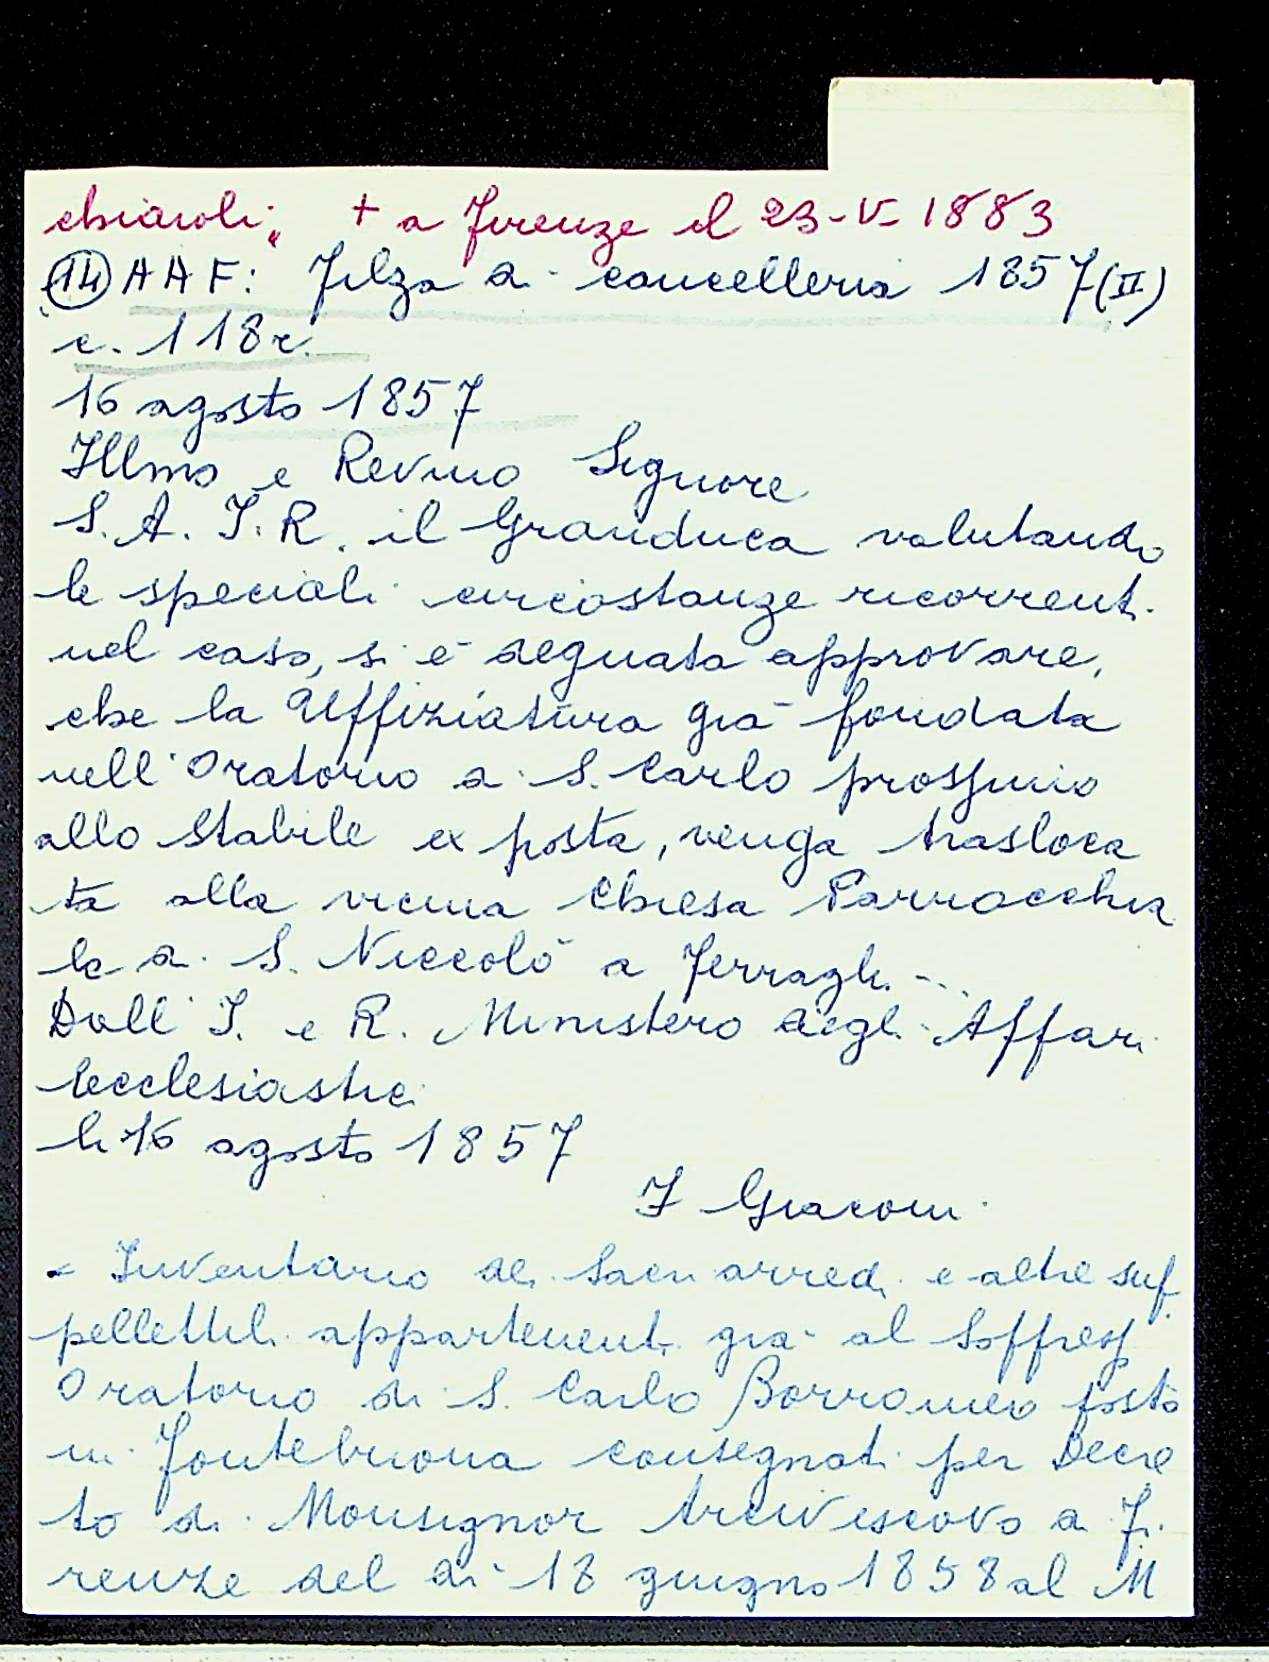 chiaroli" + a Firenze il 23-V-1883
(14) AAF: Filza di cancelleria 1857 (II)
c. 118r.
16 agosto 1857
Illmo e Revmo Signore
S. A. I. R. il Granduca valutando
le speciali circostanze ricorrenti
nel caso, si è degnata approvare,
che la Uffiziatura già fondata
nell'Oratorio di S. Carlo prossimo
allo Stabile ex posta, venga trasloca
ta alla vicina Chiesa Parrocchia
le di S. Niccolò a Ferragli -..
Dall' I. e R. Ministero degli Affari
Ecclesiastici
li 16 agosto 1857
F Giacomi
- Inventario dei Sacri arredi e altre sup
pellettili appartenenti già al Soppresso
Oratorio di S. Carlo Borromeo posto
in Fontebuona consegnati per Decre
to di Monsignor Arcivescovo di Fi
renze del dì 18 giugno 1858 al M